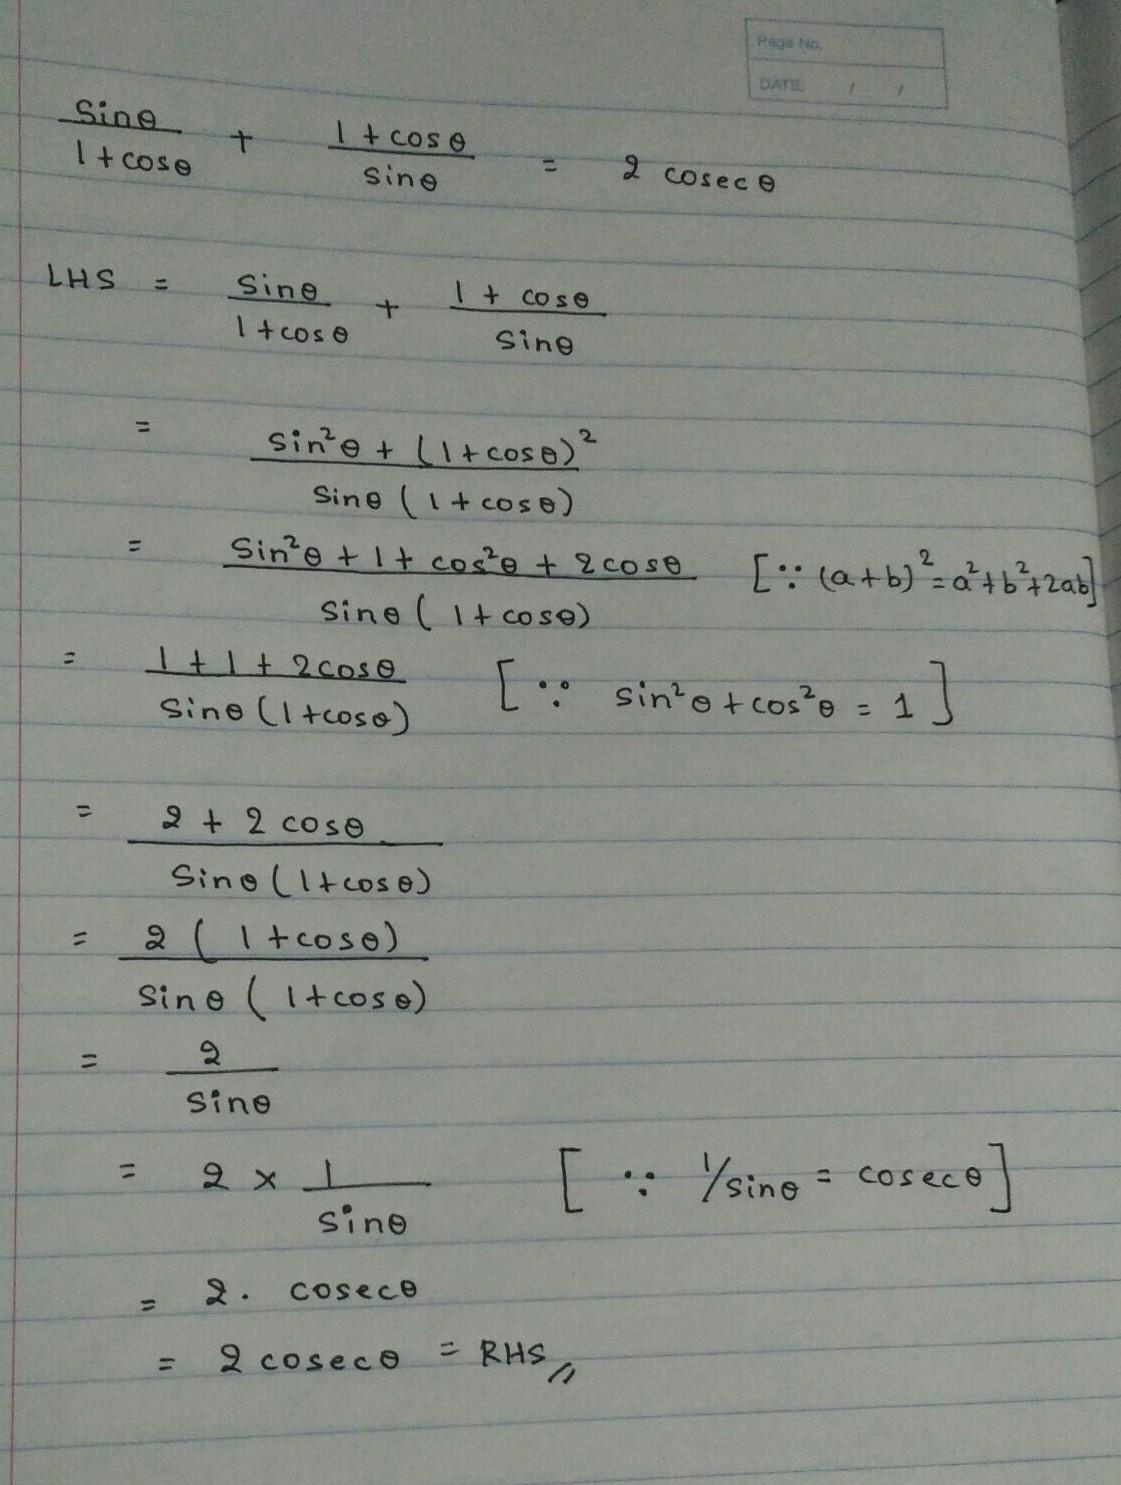 Page No.
DATE / /
sinθ/(1+cosθ) + (1+cosθ)/sinθ = 2 cosecθ
LHS = sinθ/(1+cosθ) + (1+cosθ)/sinθ
= (sin²θ + (1+cosθ)²)/(sinθ(1+cosθ))
= (sin²θ + 1 + cos²θ + 2cosθ)/(sinθ(1+cosθ)) [∵ (a+b)² = a²+b²+2ab]
= (1+1+2cosθ)/(sinθ(1+cosθ)) [∵ sin²θ+cos²θ = 1]
= (2 + 2cosθ)/(sinθ(1+cosθ))
= 2(1+cosθ)/(sinθ(1+cosθ))
= 2/sinθ
= 2 × 1/sinθ [∵ 1/sinθ = cosecθ]
= 2. cosecθ
= 2 cosecθ = RHS //